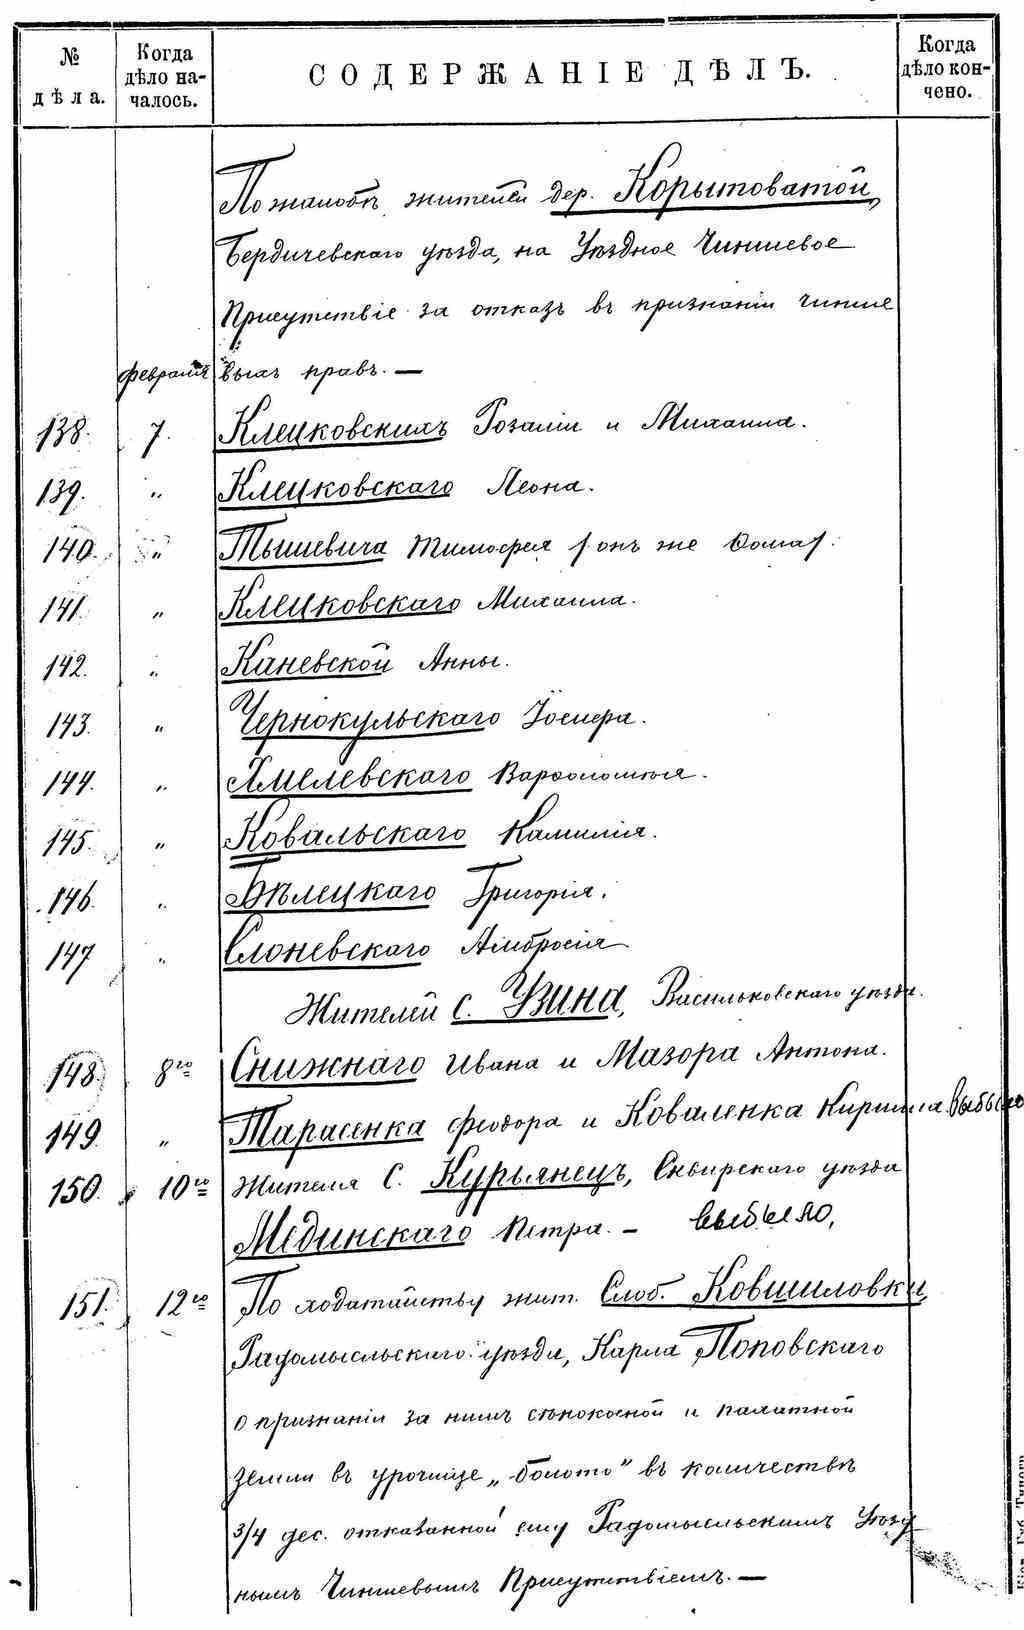 № дѣла.
Когда дѣло началось.
СОДЕРЖАНІЕ ДѢЛЪ.
Когда дѣло кончено.
По жалобѣ жителей дер. Корытоватой,
Бердичевскаго уѣзда, на Уѣздное Чиншевое
Присутствіе за отказъ въ признаніи чинше
февраля выхъ правъ. —
138. 7. Клецковскихъ Розаліи и Михаила.
139. " Клецковскаго Леона.
140. " Тышевича Тимофея /онъ же Фома/.
141. " Клецковскаго Михаила.
142. " Каневской Анны.
143. " Чернокульскаго Іосифа.
144. " Хмелевскаго Варфоломѣя.
145. " Ковальскаго Камилія.
146. " Бѣлецкаго Григорія.
147 " Слоневскаго Амбросія
Жителей с. Узина, Васильковскаго уѣзда.
148. 8го Снижнаго Ивана и Мазора Антона.
149. " Тарасенка Феодора и Коваленка Кирилла. выбыло
150. 10го Жителя С. Курьянецъ, Сквирскаго уѣзда
Мединскаго Петра. — выбыло,
151. 12го По ходатайству жит. Слоб. Ковшиловки,
Радомысльскаго уѣзда, Карла Поповскаго
о признаніи за нимъ сѣнокосной и пахатной
земли въ урочище „болото" въ количествѣ
3/4 дес. отказанной ему Радомысльскимъ Уѣзд
нымъ Чиншевымъ Присутствіемъ. —
Кіев. Губ. Типогр.